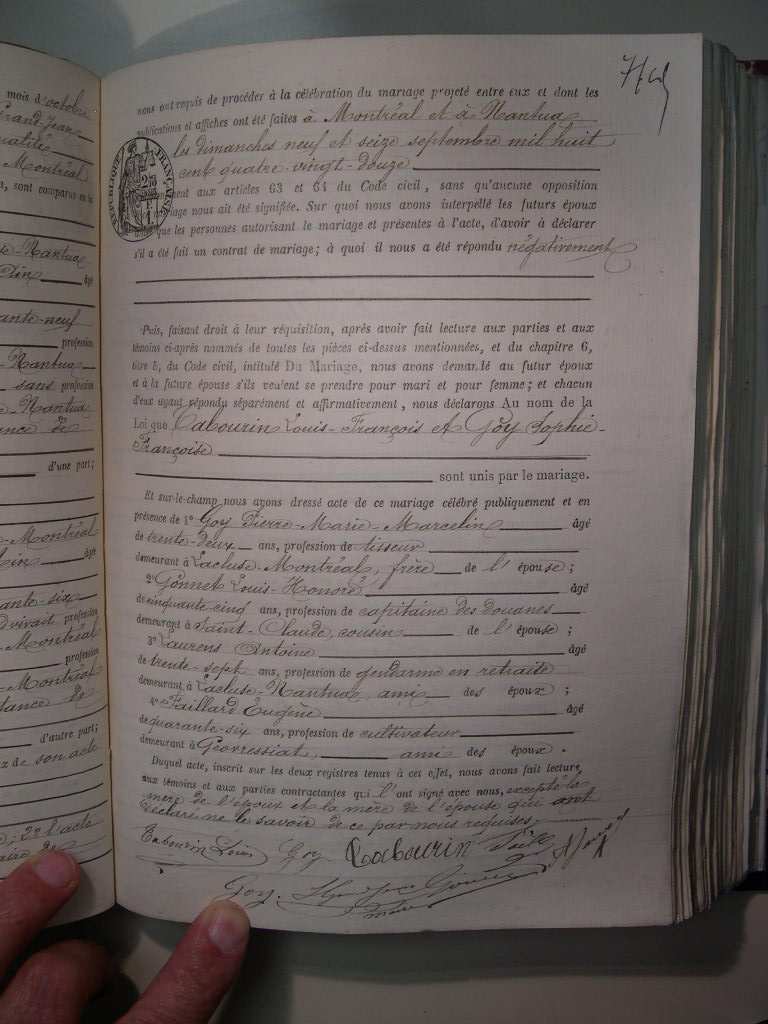 mois d'octobre
Grand Jean
Montréal
sont comparus en la
Nantua
âgé
ante-neuf
profession
Nantua
sans profession
Nantua
d'une part;
Montréal
âgé
ante-six
profession
Montréal
profession
Montréal
d'autre part;
de son acte
2° l'acte
nous ont requis de procéder à la célébration du mariage projeté entre eux et dont les
publications et affiches ont été faites à Montréal et à Nantua
les dimanches neuf et seize septembre mil huit
cent quatre-vingt-douze
RÉPUBLIQUE FRANÇAISE
aux articles 63 et 64 du Code civil, sans qu'aucune opposition
mariage nous ait été signifiée. Sur quoi nous avons interpellé les futurs époux
que les personnes autorisant le mariage et présentes à l'acte, d'avoir à déclarer
s'il a été fait un contrat de mariage; à quoi il nous a été répondu négativement
Puis, faisant droit à leur réquisition, après avoir fait lecture aux parties et aux
témoins ci-après nommés de toutes les pièces ci-dessus mentionnées, et du chapitre 6,
titre 5, du Code civil, intitulé Du Mariage, nous avons demandé au futur époux
et à la future épouse s'ils veulent se prendre pour mari et pour femme; et chacun
d'eux ayant répondu séparément et affirmativement, nous déclarons Au nom de la
Loi que Cabourin Louis-François et Goy Sophie-
Françoise
sont unis par le mariage.
Et sur-le-champ nous avons dressé acte de ce mariage célébré publiquement et en
présence de 1° Goy Pierre-Marie-Marcelin âgé
de trente-deux ans, profession de tisseur
demeurant à Lacluse-Montréal, frère de l'épouse;
2° Gonnet Louis-Honoré âgé
de cinquante cinq ans, profession de capitaine des Douanes
demeurant à Saint-Claude, cousin de l'épouse;
3° Laurens Antoine âgé
de trente-sept ans, profession de gendarme en retraite
demeurant à Lacluse-Nantua, ami des époux;
4° Faillard Eugène âgé
de quarante-six ans, profession de cultivateur
demeurant à Géovressiat, ami des époux.
Duquel acte, inscrit sur les deux registres tenus à cet effet, nous avons fait lecture
aux témoins et aux parties contractantes qui l'ont signé avec nous, excepté la
mère de l'époux et la mère de l'épouse qui ont
déclaré ne le savoir de ce par nous requises.
Cabourin Louis Goy Cabourin
Goy.